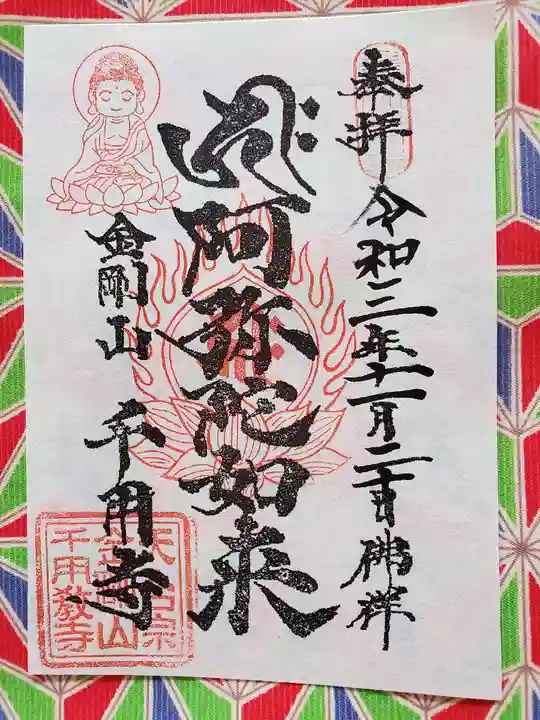 奉拝
令和三年十一月二十日佛詳
阿弥陀如来
金剛山 千用寺
天台宗
金剛山
千用教寺